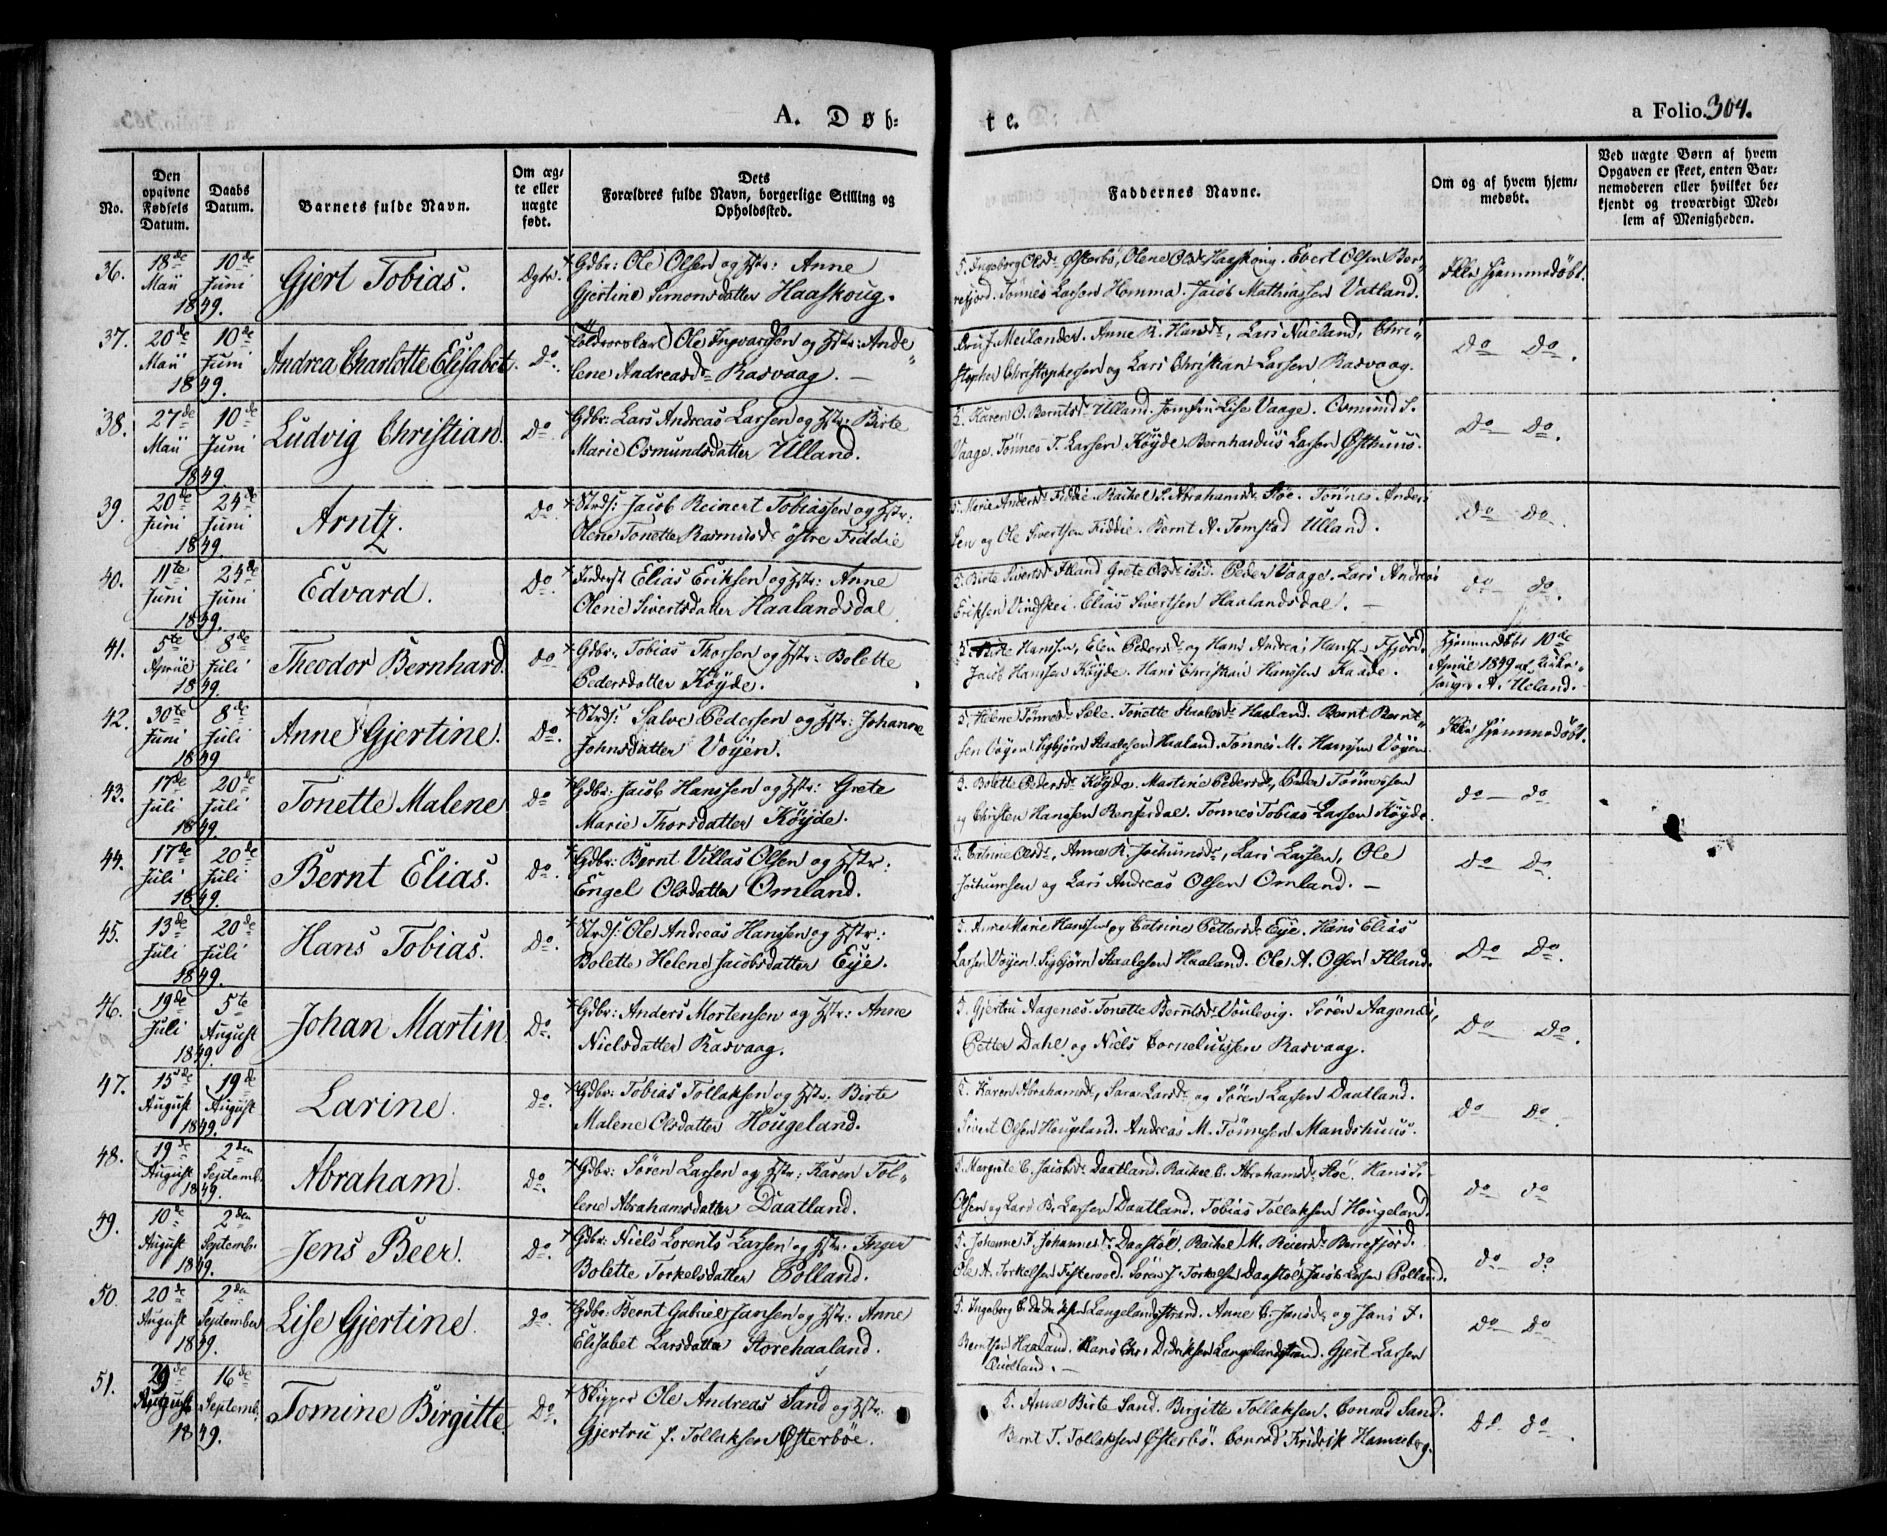 A. Døb-
te.
a Folio. 304.
No.
Den opgivne Fødsels Datum.
Daabs Datum.
Barnets fulde Navn.
Om ægte eller uægte født.
Dets Forældres fulde Navn, borgerlige Stilling og Opholdssted.
Faddernes Navne.
Om og af hvem hjemmedøbt.
Ved uægte Børn af hvem Opgaven er skeet, enten Barnemoderen eller hvilket bekjendt og troværdigt Medlem af Menigheden.
36. 18de Maii 10de Juni 1849. Gjert Tobias.
Gdbr: Ole Olsen og Hstr: Anne
Gjertine Simonsdatter Haaskoug.
Ingeborg Olsdr Østerbö, Olene Olsdr Haaskoug. Evert Olsen Ber-
refjord. Tönnes Larsen Homma. Jacob Mathiassen Vatland.
Ikke hjemmedöbt.
37. 20de Maii 10de Juni 1849. Andrea Charlotte Elisabet. Do.
Ole Ingvarsen og Hstr: Ande"
lene Andreasdr Rasvaag. —
Anne R. Hansdr, Lars Nueland, Chri"
stopher Christophersen og Lars Christian Larsen Rasvaag.
Do — Do.
38. 27de Maii 10de Juni 1849. Ludvig Christian. Do
Gdbr: Lars Andreas Larsen og Hstr: Birte
Marie Osmundsdatter Ulland.
Karen O. Berntsdr Ulland. Jomfru Lise Vaage. Osmund S.
Vaage. Tönnes T. Larsen Köyde. Bernhardus Larsen Østhuus.
Do — Do.
39. 20de Juni 24de Juni 1849. Arntz. Do.
Strds: Jacob Reinert Tobiassen og Hstr:
Olene Tonette Rasmusdr östre Fiddie
Marie Andersdr Fiddie. Rachel S. Abrahamsdr Stöe. Tönnes Ander
sen og Ole Sivertsen Fiddie. Bernt A. Tomstad Ulland.
Do Do.
40. 11te Juni 24de Juni 1849. Edvard. Do.
Inderst Elias Eriksen og Hstr: Anne
Olene Sivertsdatter Haalandsdal
Birte Sivertsdr Åland Grete Olsdr ibid. Peder Vaage. Lars Andreas
Eriksen Vindskei. Elias Sivertsen Haalandsdal. —
do — do.
41. 5te April 8de Juli 1849. Theodor Bernhard. do
Gdbr. Tobias Thorsen og Hstr: Bolette
Pedersdatter Köyde.
Birte Hanssen, Elen Pedersdr og Hans Andreas Hansen Fjord.
Jacob Hanssen Köyde. Hans Christian Hanssen Kaade.
Hjemmedöbt 10de
April 1849 af Kirke-
sanger A. Ueland.
42. 30te Juni 8de Juli 1849 Anne Gjertine. Do.
Strds: Salve Pedersen og Hstr: Johanne
Johnsdatter Vöyen.
Helene Tönnesdr Sele. Tonette Staalesdr Haaland. Bernt Bernt"
sen Vöyen Sigbjörn Staalesen Haaland. Tönnes M. Hanssen Vöyen.
Ikke hjemmedöbt.
43. 17de Juli 20de Juli 1849 Tonette Malene Do
Gdbr: Jacob Hanssen og Hstr: Grete
Marie Thorsdatter Köyde.
Bolette Pedersdr Köyde. Martine Pedersdr, Peder Tönnessen
og Christen Hanssen Rensesdal. Tönnes Tobias Larsen Köyde.
do — do.
44. 17de Juli 20de Juli 1849. Bernt Elias. Do.
Gdbr: Bernt Villas Olsen og Hstr:
Engel Olsdatter Omland.
Catrine Olsdr, Anne K. Jochumsdr, Lars Larsen, Ole
Jochumsen og Lars Andreas Olsen Omland. —
Do — Do.
45. 13de Juli 20de Juli 1849. Hans Tobias. Do.
Strds: Ole Andreas Hanssen og Hstr:
Bolette Helene Jacobsdatter Eye.
Anne Marie Hanssen og Catrine Pettersdr Eye. Hans Elias
Larsen Vöyen. Sigbjörn Staalesen Haaland. Ole A. Olsen Åland.
Do — Do.
46. 19de Juli 5te August 1849. Johan Martin Do.
Gdbr: Anders Mortensen og Hstr: Anne
Nielsdatter Rasvaag.
Gjertru Aagenes. Tonette Berntsdr Voulevig. Sören Aagenes,
Petter Dahl og Niels Corneliussen Rasvaag.
Do — Do.
47. 15de August 19de August 1849. Larine. do.
Gdbr: Tobias Tollaksen og Hstr. Birte
Malene Olsdatter Hougeland.
Karen Abrahamsdr, Sara Larsdr og Sören Larsen Daatland.
Sivert Olsen Hougeland. Andreas M. Tönnesen Mandshuus.
Do — Do.
48. 19de August 2den Septemb. 1849. Abraham. Do.
Gdbr: Sören Larsen og Hstr: Karen Tol"
lene Abrahamsdatter Daatland.
Margrete C. Jacobsdr Daatland. Rachel C. Abrahamsdr Stöe. Hans S.
Olsen og Lars B. Larsen Daatland. Tobias Tollaksen Hougeland.
do — do
49. 10de August 2den Septembr 1849. Jens Beer. Do.
Gdbr: Niels Lorents Larsen og Hstr: Inger
Bolette Torkelsdatter Polland.
Johanne T. Johannesdr Daastöl. Rachel M. Reiersdr Berrefjord.
Ole A. Torkelsen Fisterood. Sören J. Torkelsen Daastöl. Jacob Larsen Polland.
do do
50. 20de August 2den September 1849. Lise Gjertine. Do.
Gdbr: Bernt Gabriel Jansen og Hstr: Anne
Elisabet Larsdatter Storehaaland.
Ingeborg C. Langelandstrand. Anne C. Jansdr og Jans F.
Berntsen Haaland. Hans Chr. Didriksen Langelandstrand. Gjert Larsen
Do — Do.
51. 29de August 16de Septemb. 1849. Tomine Birgitte Do.
Skipper Ole Andreas Sand og Hstr.
Gjertru f. Tollaksen Østerböe.
Anne Birte Sand. Birgitte Tollaksen. Conrad Sand.
Bernt T. Tollaksen Østerbö. Conrad Fridrik Hanneberg.
Do do